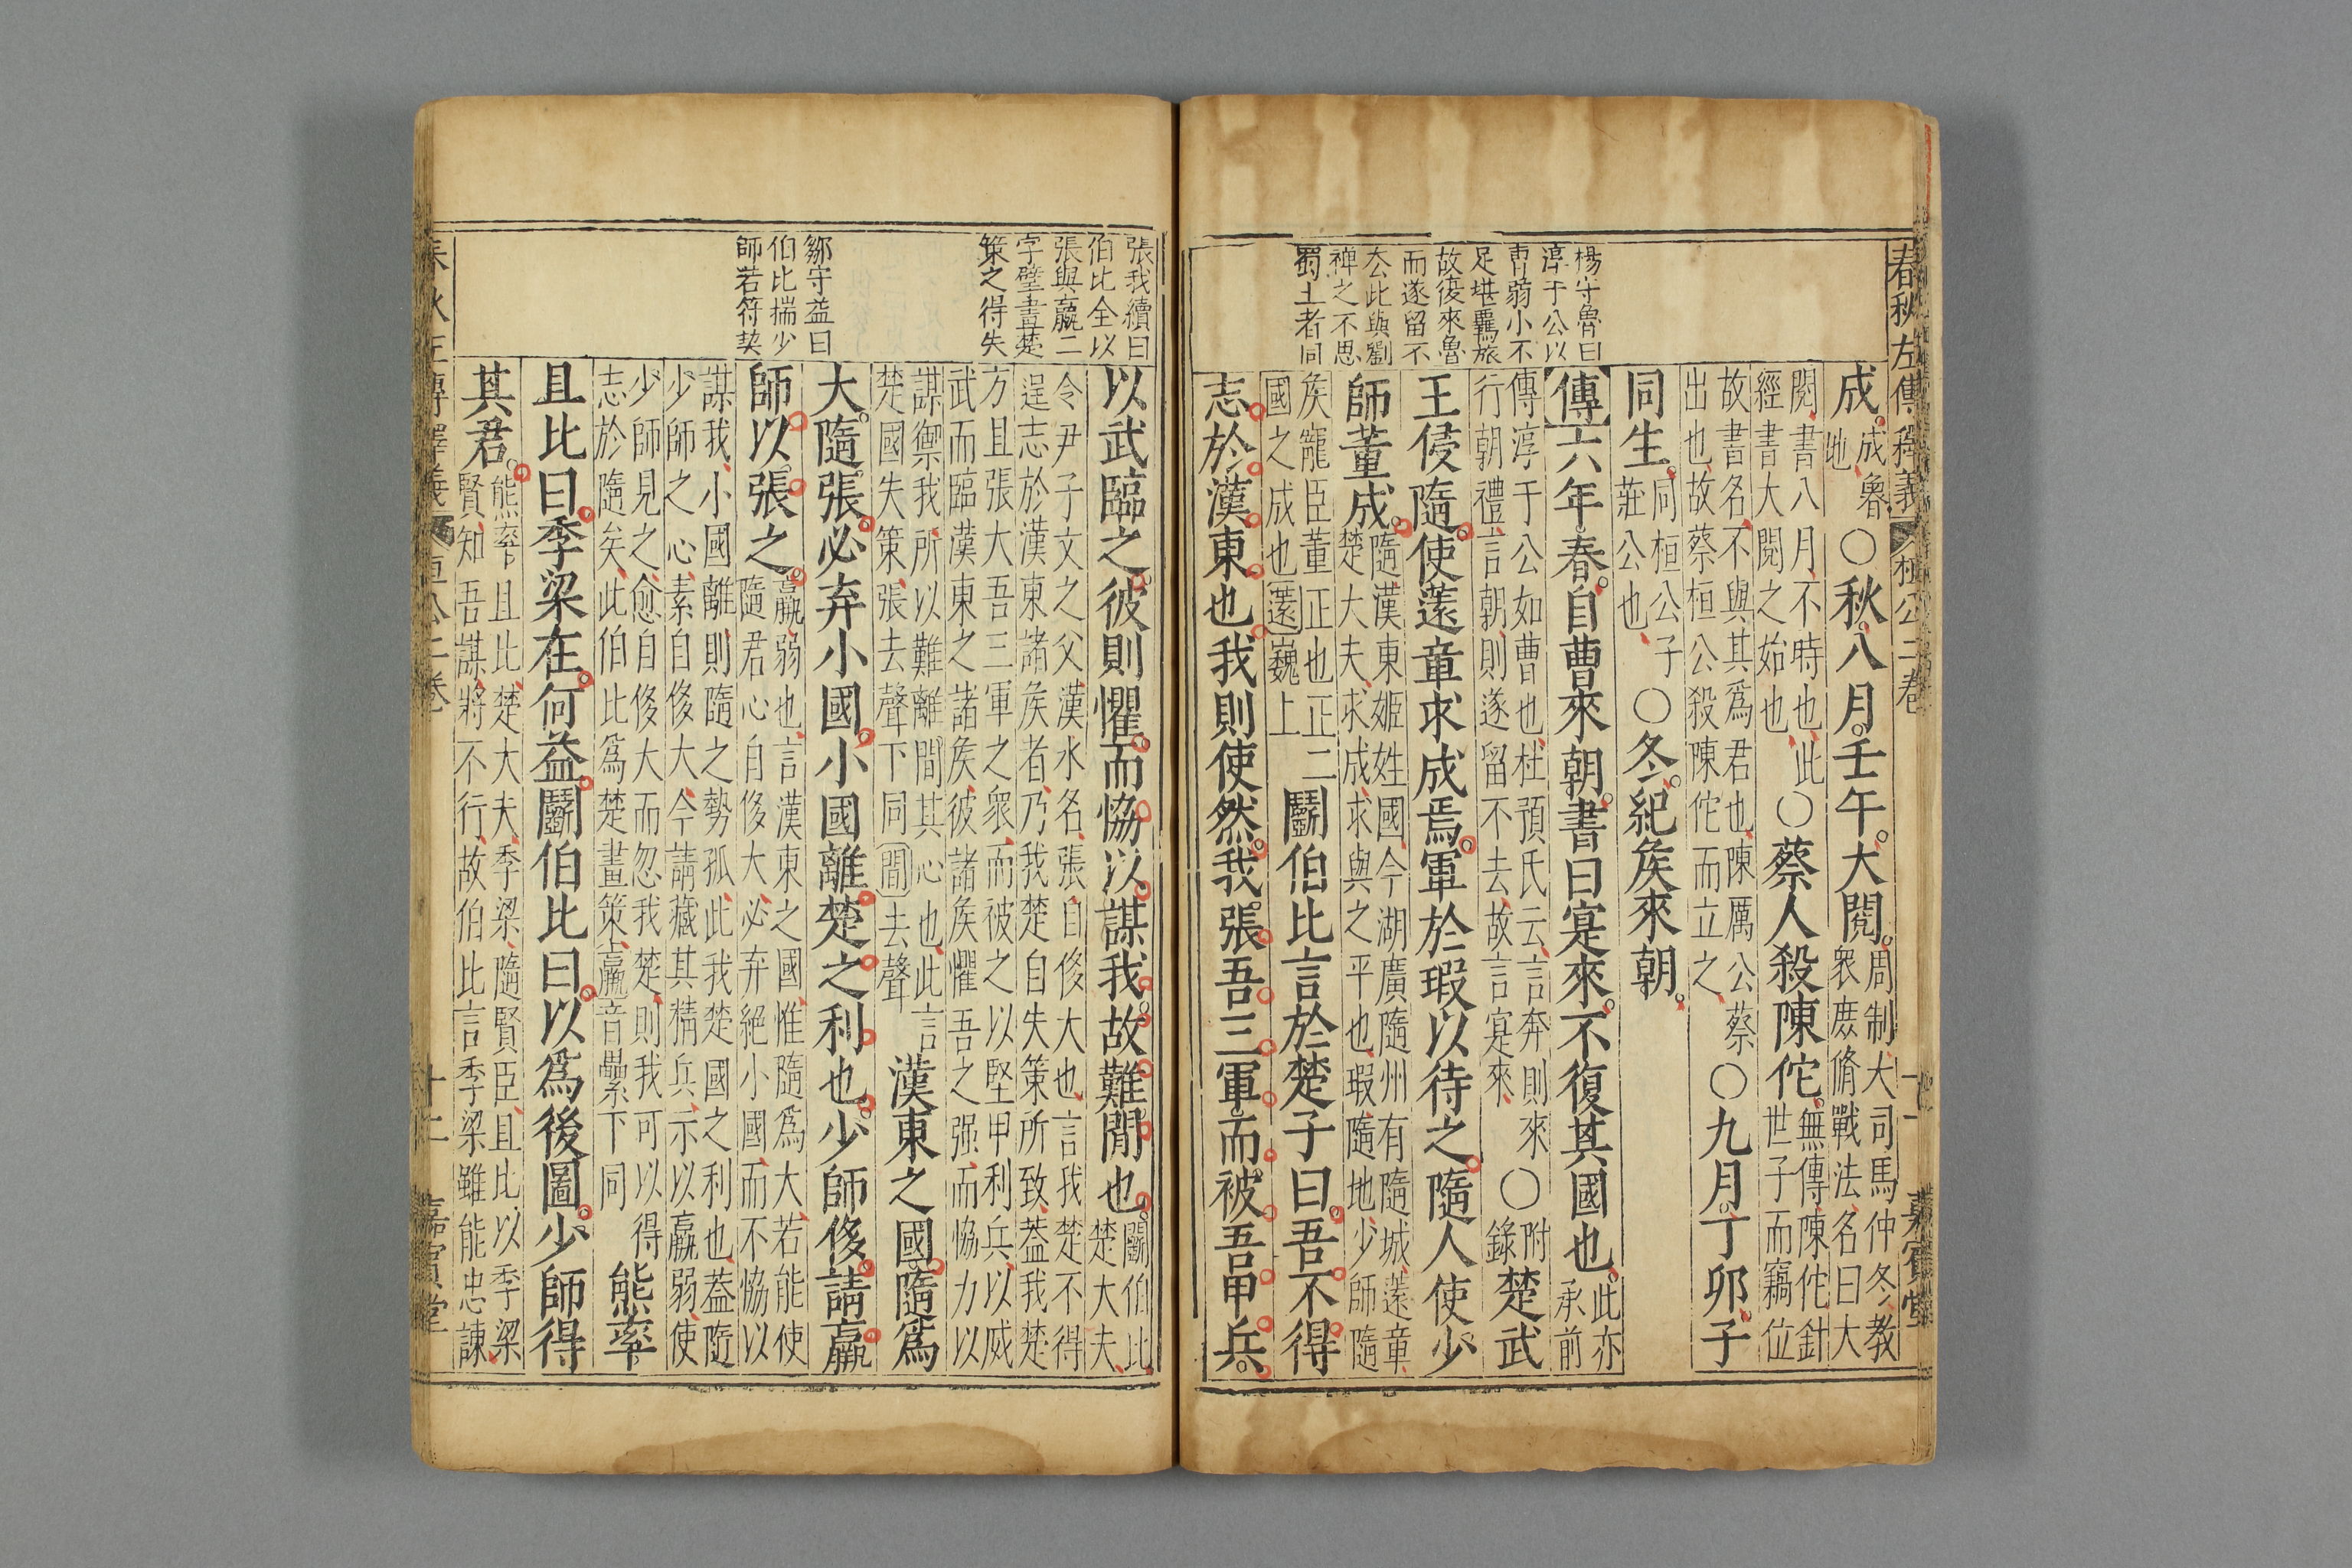 春秋左傳釋義 桓公二卷 十一 嘉賓堂
楊守魯曰
淳于公以
曹弱小不
足堪羈旅
故復來魯
而遂留不
去此與劉
禪之不思
蜀土者同
成。成魯地○秋八月。壬午。大閱。周制大司馬仲冬教衆庶脩戰法名曰大
閱書八月不時也此經書大閱之始也○蔡人殺陳佗。無傳陳佗針世子而竊位
故書名不與其爲君也陳厲公蔡出也故蔡桓公殺陳佗而立之○九月。丁卯。子
同生。同桓公子莊公也○冬。紀矦來朝。
傳六年春。自曹來朝。書曰寔來。不復其國也。此亦承前
傳淳于公如曹也杜預氏云言奔則來行朝禮言朝則遂留不去故言寔來○附錄楚武
王侵隨。使薳章求成焉。軍於瑕以待之。隨人使少
師董成。隨漢東姬姓國今湖廣隨州有隨城薳章楚大夫求成求與之平也瑕隨地少師隨
矦寵臣董正也正二國之成也薳巍上鬭伯比言於楚子曰。吾不得
志於漢東也。我則使然。我張吾三軍。而被吾甲兵。
張我續曰
伯比全以
張與羸二
字壁畫楚
策之得失
鄒守益曰
伯比揣少
師若符契
以武臨之。彼則懼而恊以謀我。故難閒也。鬭伯比楚大夫
令尹子文之父漢水名張自侈大也言我楚不得逞志於漢東諸矦者乃我楚自失策所致葢我楚
方且張大吾三軍之衆而被之以堅甲利兵以威武而臨漢東之諸矦彼諸矦懼吾之强而恊力以
謀禦我所以難離間其心也此言楚國失策張去聲下同閒去聲漢東之國。隨爲
大。隨張。必弃小國。小國離。楚之利也。少師侈。請羸
師以張之。羸弱也言漢東之國惟隨爲大若能使隨君心自侈大必弃絕小國而不恊以
謀我小國離則隨之勢孤此我楚國之利也葢隨少師之心素自侈大今請藏其精兵示以羸弱使
少師見之愈自侈大而忽我楚則我可以得志於隨矣此伯比爲楚畫策羸音纍下同熊率
且比曰。季梁在。何益。鬭伯比曰。以爲後圖。少師得
其君。熊率且比楚大夫季梁隨賢臣且比以季梁賢知吾謀將不行故伯比言季梁雖能忠諫
春秋左傳釋義 桓公二卷 十二 嘉賓堂